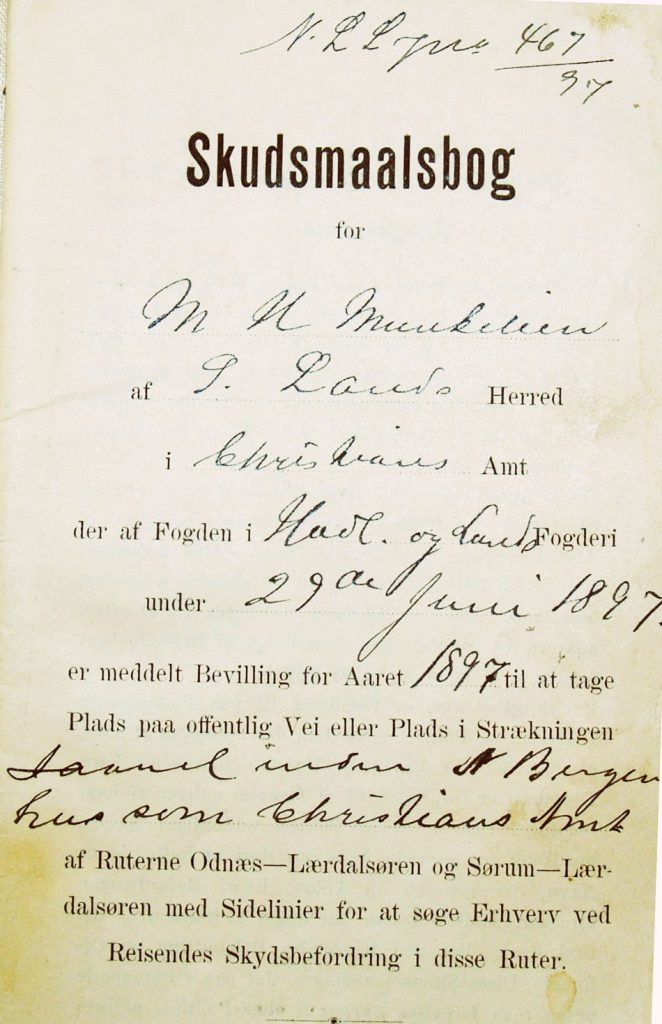 467
97
Skudsmaalsbog
for
M N Munkelien
af S. Lands Herred
i Christians Amt
der af Fogden i Hadl. og Lands Fogderi
under 29de Juni 1897.
er meddelt Bevilling for Aaret 1897 til at tage
Plads paa offentlig Vei eller Plads i Strækningen
saavel inden N Bergen
hus som Christians Amt
af Ruterne Odnæs—Lærdalsøren og Sørum—Lær-
dalsøren med Sidelinier for at søge Erhverv ved
Reisendes Skydsbefordring i disse Ruter.